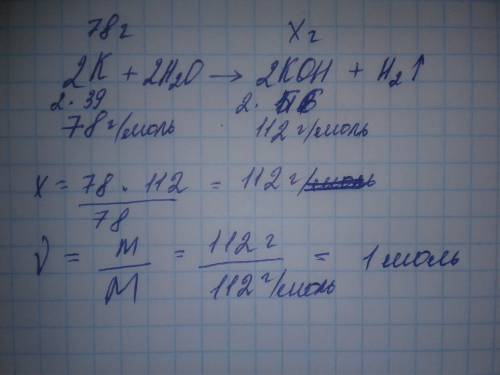 78г xг
2K + 2H₂O → 2KOH + H₂↑
2·39 2·56
78г/моль 112г/моль
x = 78·112 / 78 = 112г
ν = m / M = 112г / 112г/моль = 1моль